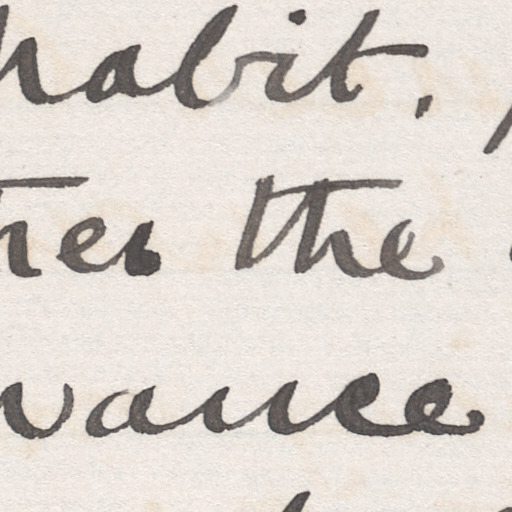 habit.
her the
vance